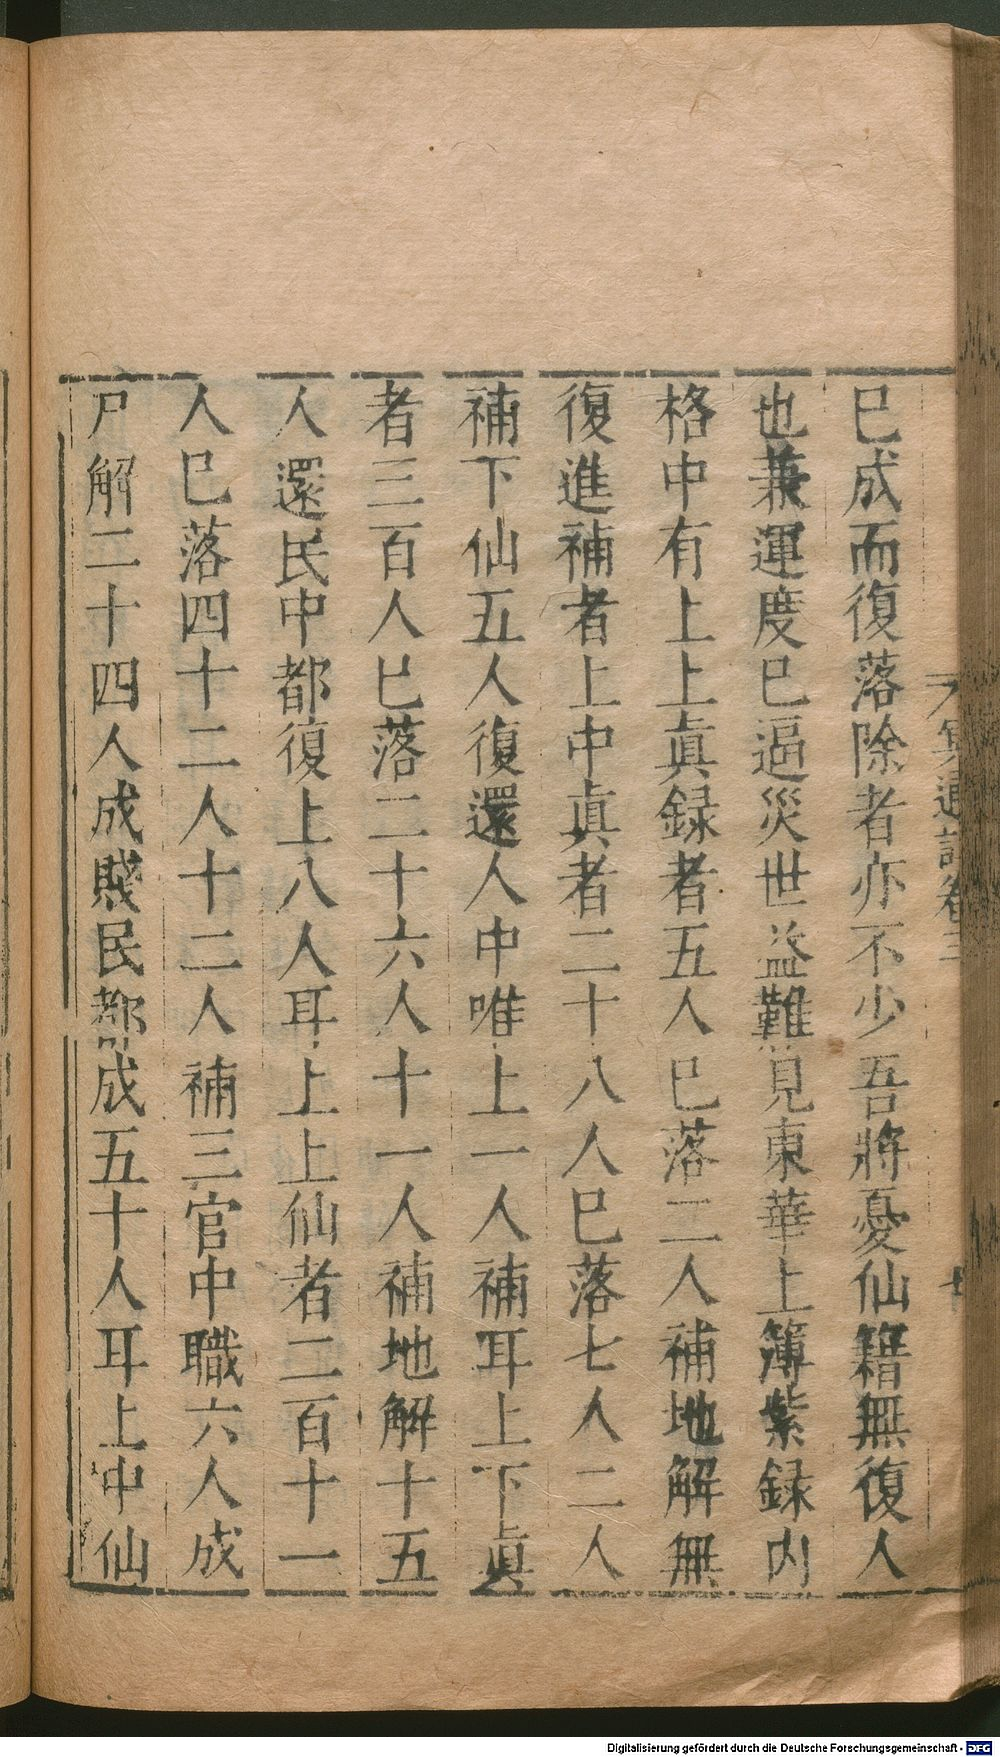 冥通記卷三
已成而復落除者亦不少吾將憂仙籍無復人
也兼運度已逼災世益難見東華上簿紫録内
格中有上上真録者五人已落二人補地解無
復進補者上中真者二十八人已落七人二人
補下仙五人復還人中唯上一人補耳上下真
者三百人已落二十六人十一人補地解十五
人還民中都復上八人耳上上仙者二百十一
人已落四十二人十二人補三官中職六人成
尸解二十四人成賤民都成五十人耳上中仙
Digitalisierung gefördert durch die Deutsche Forschungsgemeinschaft - DFG